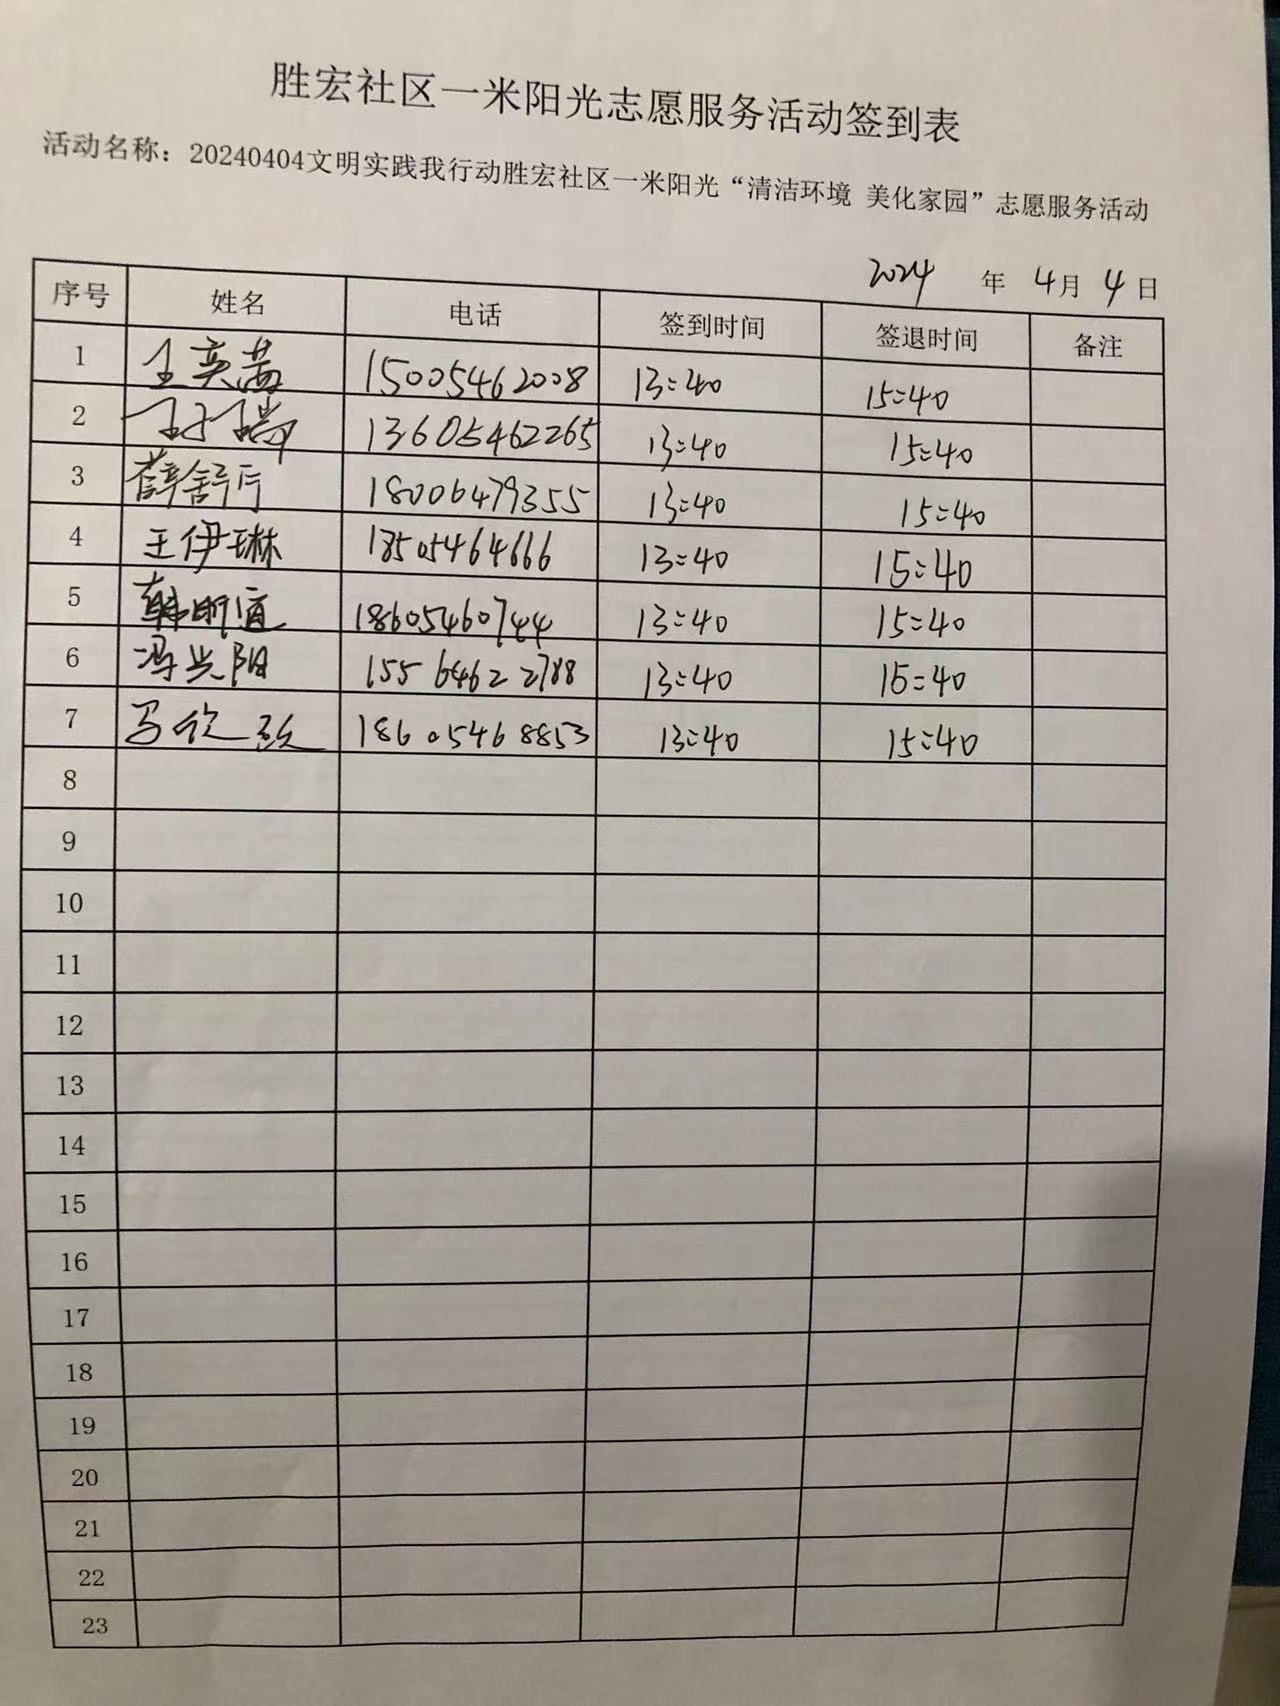 胜宏社区一米阳光志愿服务活动签到表
活动名称：20240404文明实践我行动胜宏社区一米阳光“清洁环境 美化家园”志愿服务活动
2024 年 4月 4日
序号 姓名 电话 签到时间 签退时间 备注
1 王奕茜 15005462008 13:40 15:40
2 13605462265 13:40 15:40
3 薛舒丹 18006479355 13:40 15:40
4 王伊琳 18505464666 13:40 15:40
5 韩明道 18605460744 13:40 15:40
6 冯兴阳 15564622788 13:40 15:40
7 18605468853 13:40 15:40
8
9
10
11
12
13
14
15
16
17
18
19
20
21
22
23